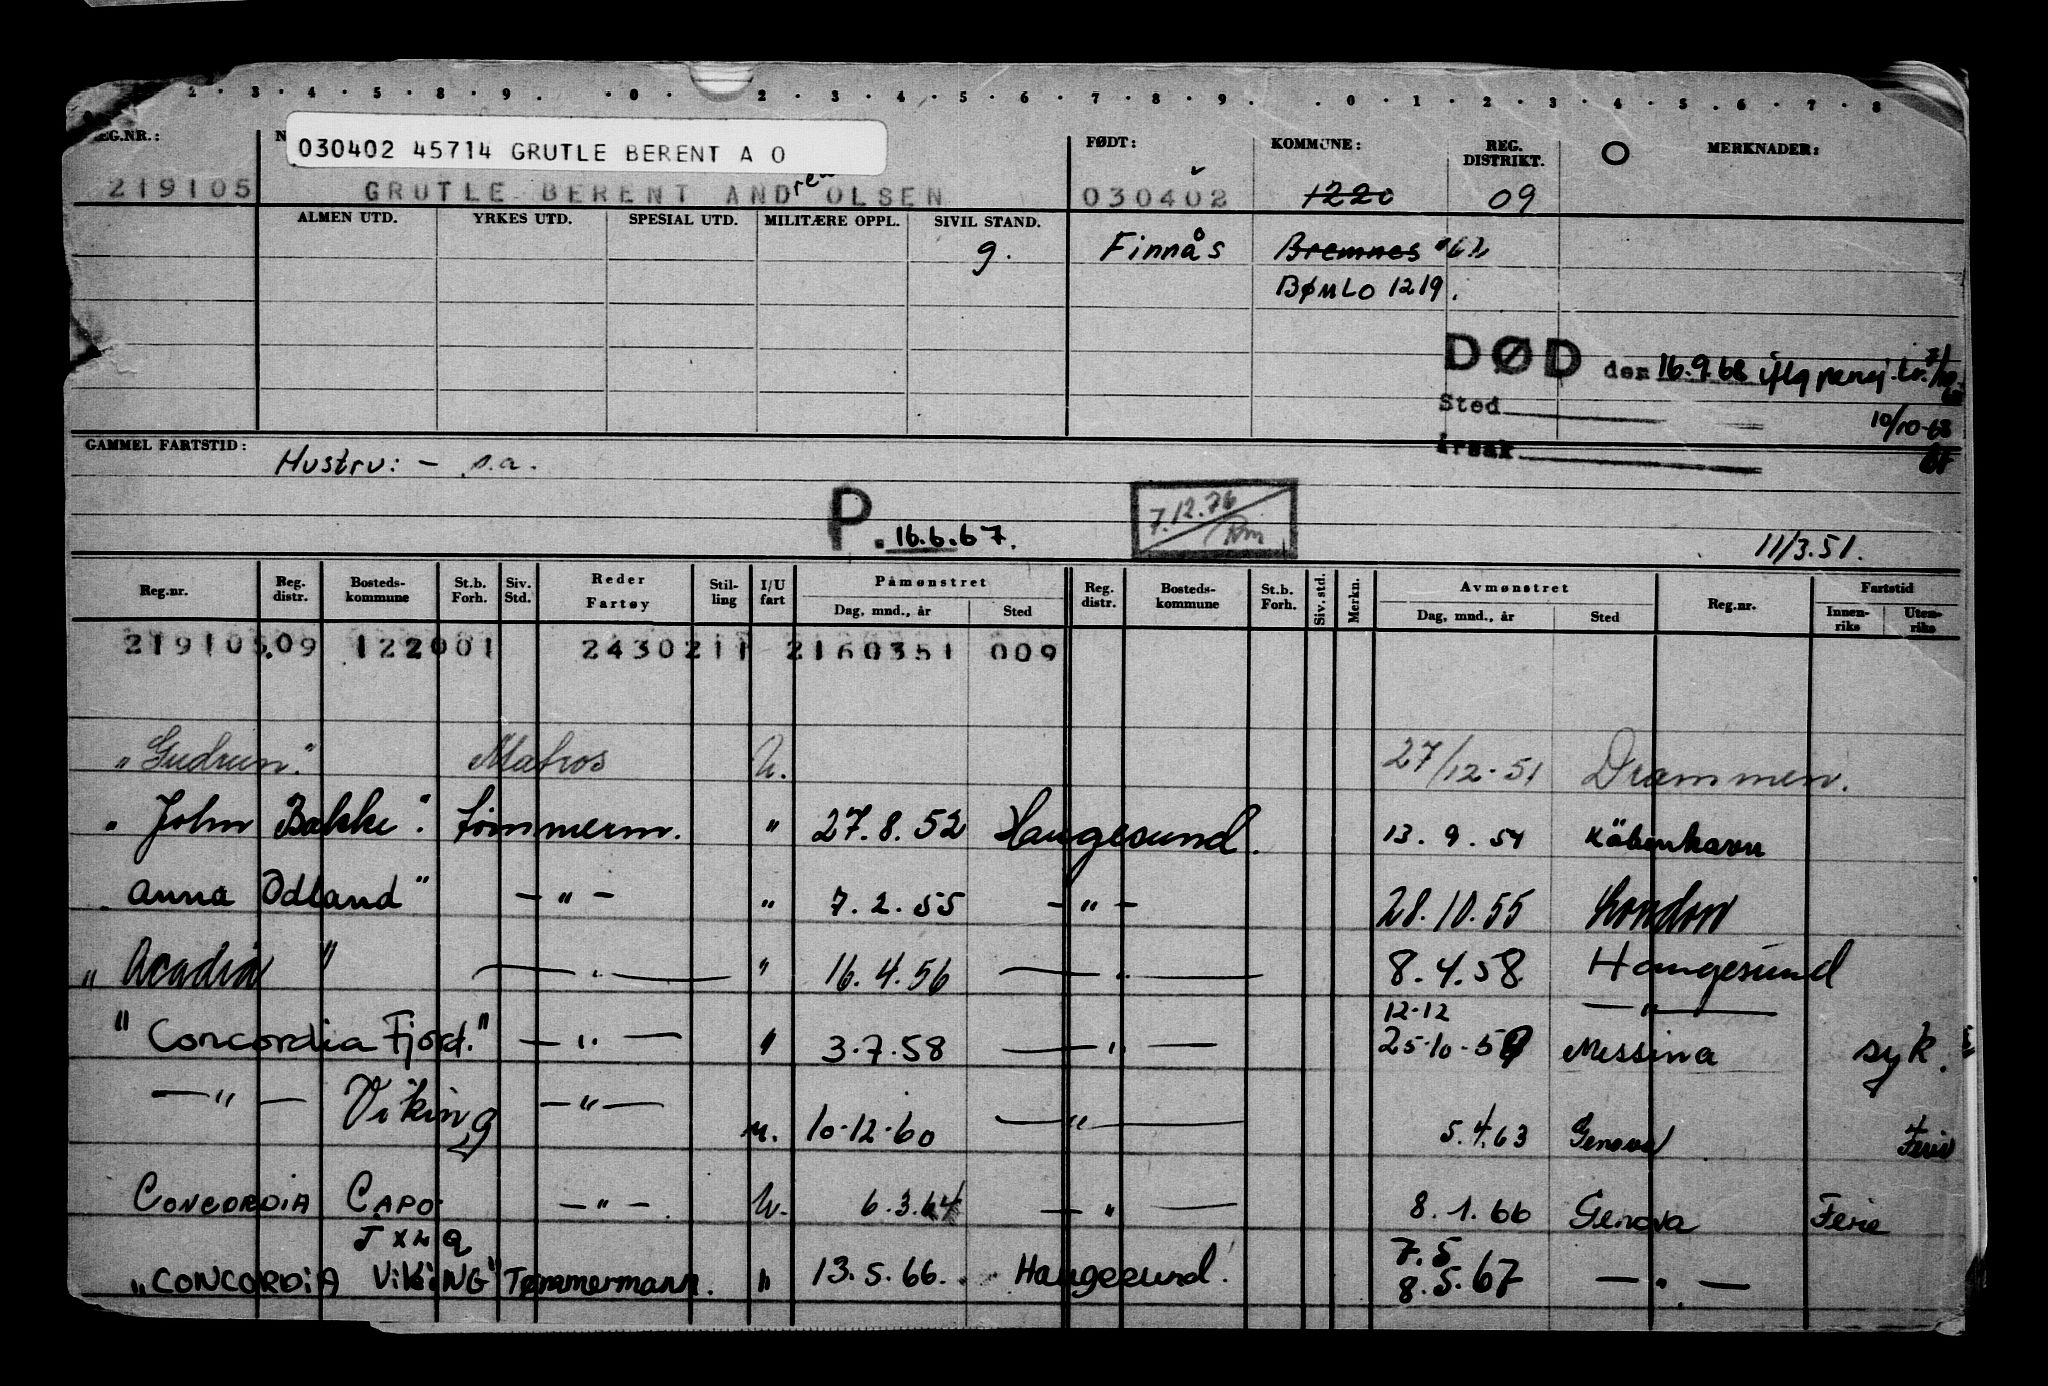 2 · 3 · 4 · 5 · 8 · 9 · · 0 · 2 · 3 · 4 · 5 · 6 · 7 · 8 · 9 · · 0 · 1 · 2 · 3 · 4 · 5 · 6 · 7 · 8
030402 45714 GRUTLE BERENT A O
EG.NR.: N FØDT: KOMMUNE: REG. DISTRIKT. O MERKNADER:
219105 GRUTLE BERENT ANDreas OLSEN 030402 1220 09
ALMEN UTD. YRKES UTD. SPESIAL UTD. MILITÆRE OPPL. SIVIL STAND.
g. Finnås Bremnes
BØMLO 1219.
DØD den 16.9.68 iflg
Sted
10/10-68
Årsak
GAMMEL FARTSTID: Hustru: - s.a.
P. 16.6.67. 7.12.76
11/3.51.
Reg.nr. Reg. distr. Bosteds-kommune St.b. Forh. Siv. Std. Reder Fartøy Stil-ling I/U fart Påmønstret Dag, mnd., år Sted Reg. distr. Bosteds-kommune St.b. Forh. Siv. std. Merkn. Avmønstret Dag, mnd., år Sted Reg.nr. Fartstid Innen-riks Uten-riks
219105.09 122001 2430211 2160351 009
"Gudrun." Matros U. 27/12-51 Drammen.
"John Bakke". tømmerm. " 27.8.52 Haugesund. 13.9.54 Köbenhavn
"Anna Odland" - " - " 7.2.55 - " - 28.10.55 London
"Acadia" - " - " 16.4.56 - " - 8.4.58 Haugesund
12-12 - " -
"Concordia Fjord." - " - " 3.7.58 - " - 25-10-59 Messina syk.
- " - Viking - " - u. 10-12-60 - " - 5.4.63 Genova Ferie
CONCORDIA CAPO - " - U. 6.3.64 - " - 8.1.66 Genova Ferie
7.5
"CONCORDIA ViKiNG" Tømmermann. " 13.5.66. Haugesund. 8.5.67 - " -